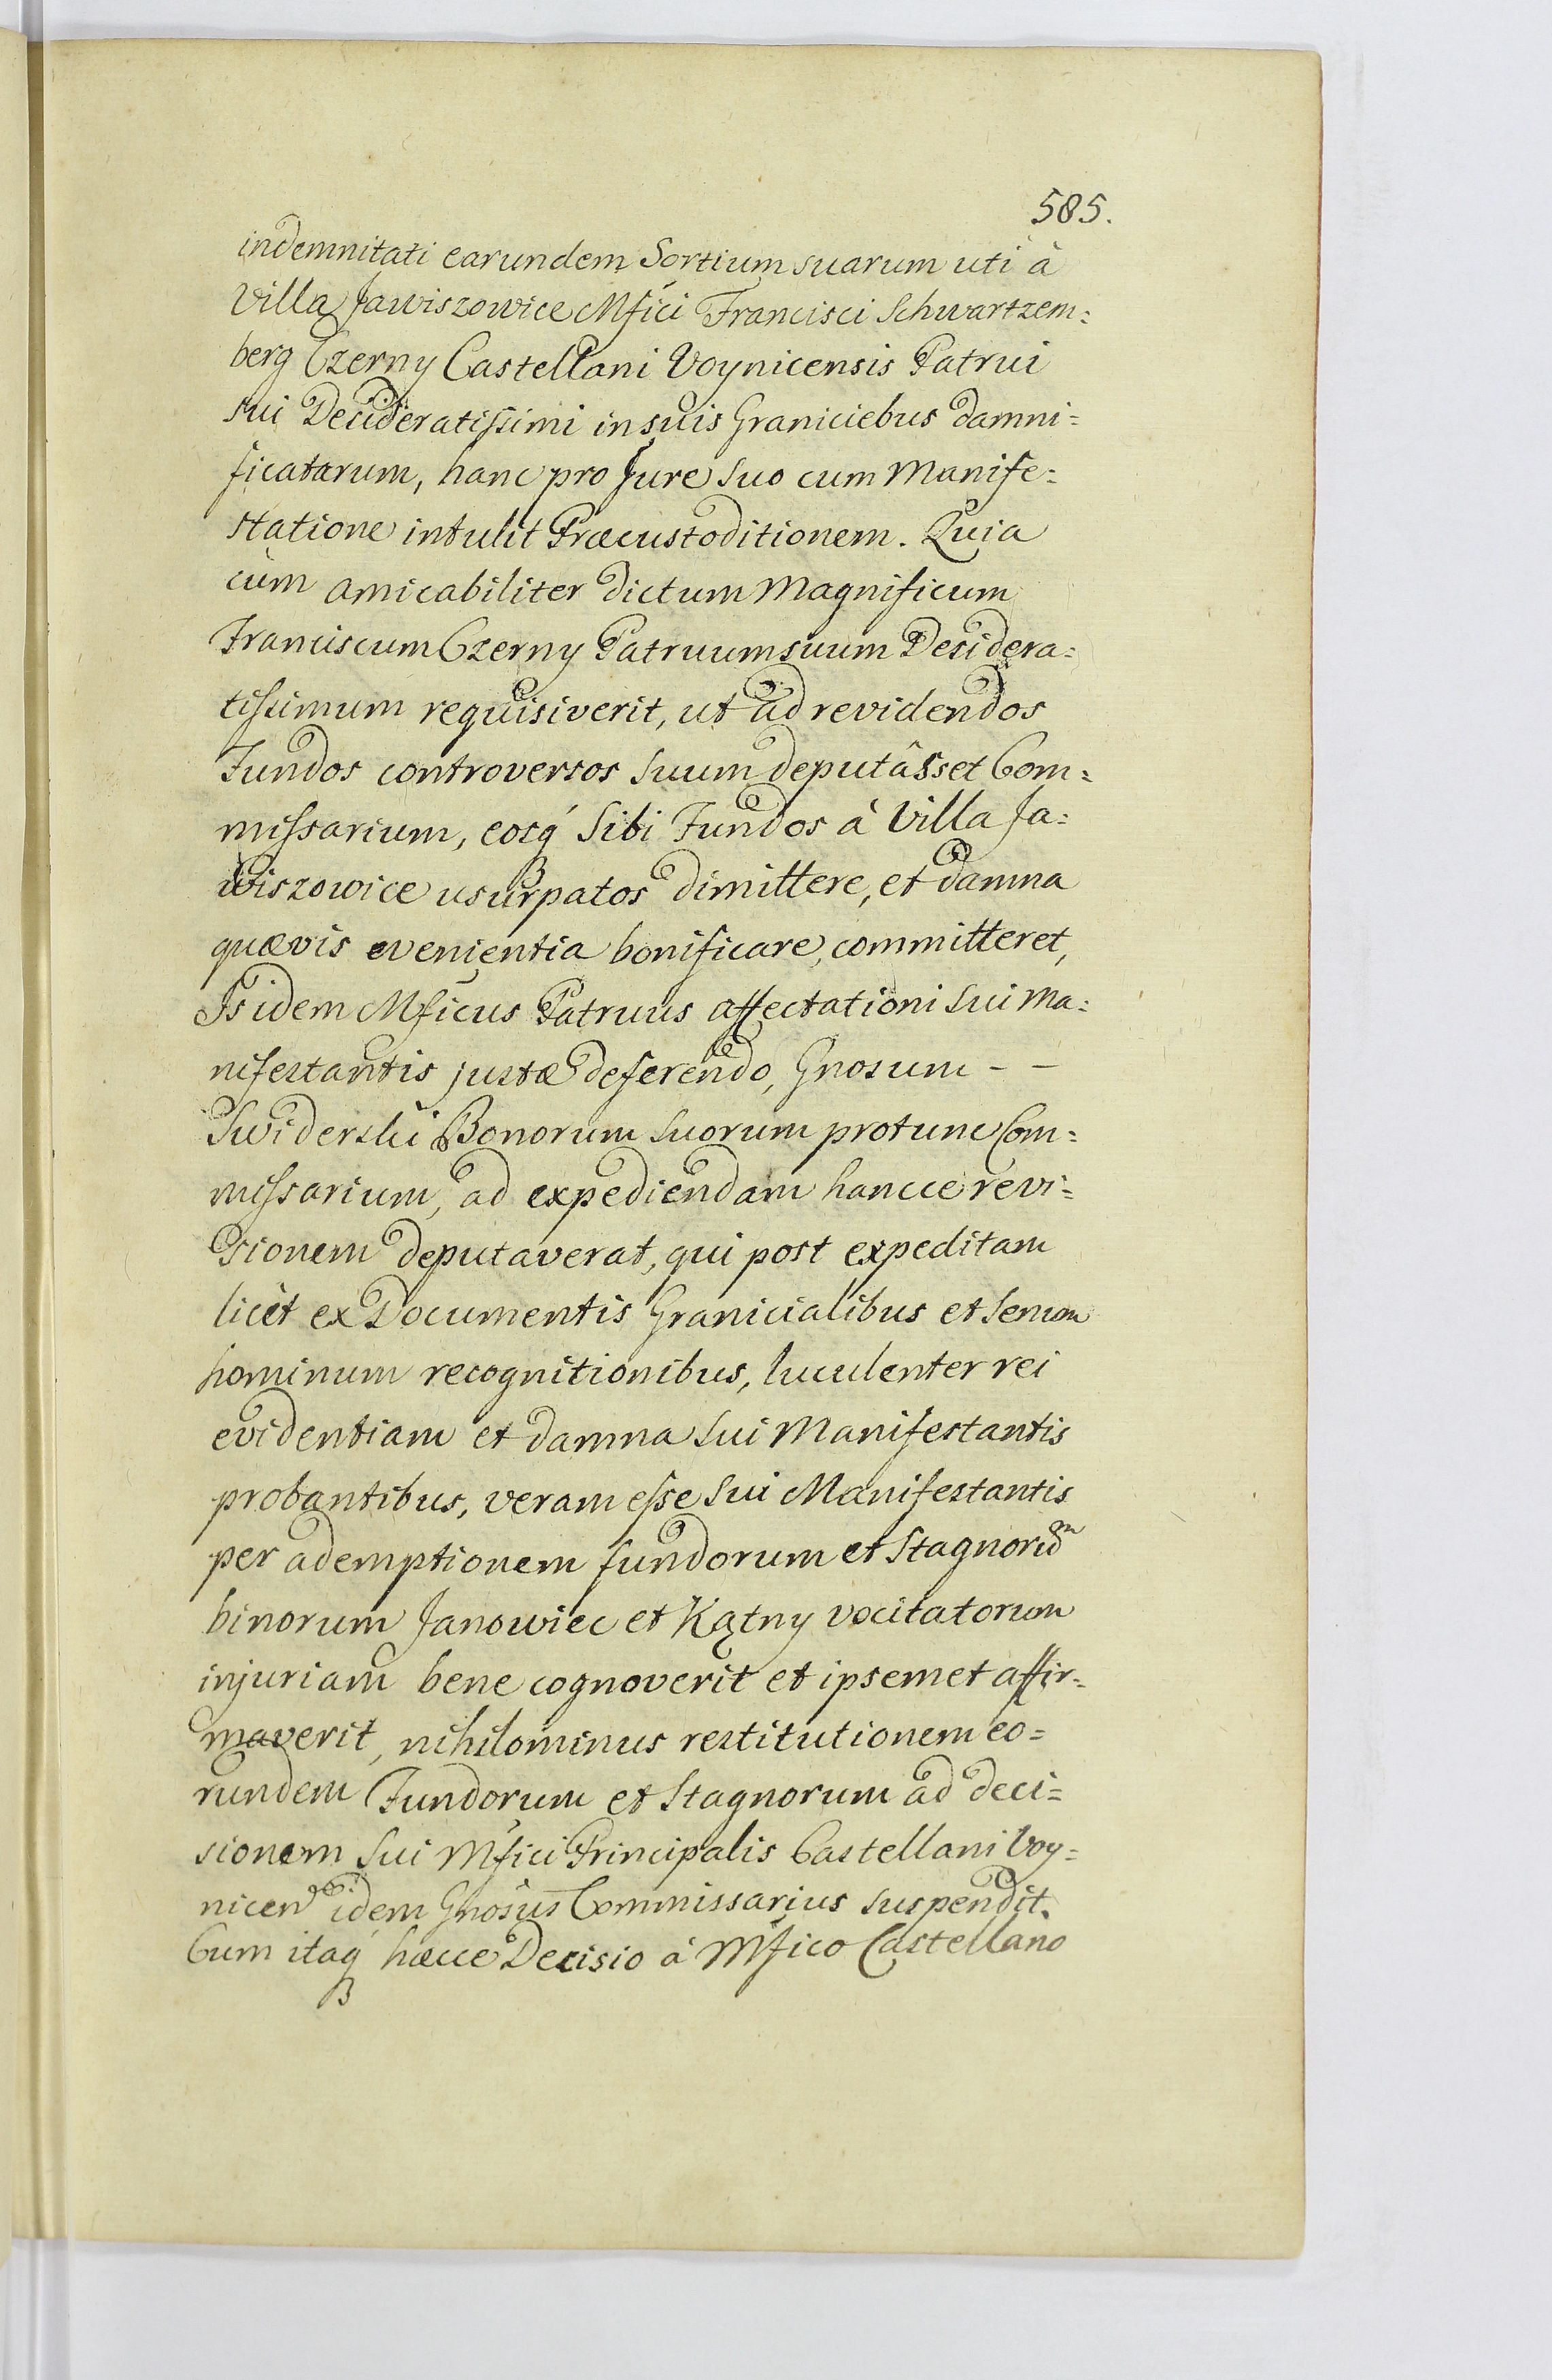 585.
indemnitati earundem Sortium suarum uti à
Villa Jawiszowice Mfici Francisci Schwartzem=
berg Czerny Castellani Voynicensis Patrui
sui Desideratissimi in suis Graniciebus damni=
ficatarum, hanc pro Jure suo cum Manife=
statione intulit Præcustoditionem. Quia
cùm amicabiliter dictum Magnificum
Franciscum Czerny Patruum suum Desidera=
tissimum requisiverit, ut ad revidendos
Fundos controversos suum deputâsset Com=
missarium, eosq́ Sibi Fundos à Villa Ja=
wiszowice usurpatos dimittere, et damna
quævis evenientia bonificare committeret,
Is idem Mficus Patruus affectationi sui Ma=
nifestantis justæ deferendo, Gnosum - -
Swiderski Bonorum suorum protunc Com=
missarium, ad expediendam hancce revi=
sionem deputaverat, qui post expeditam
licèt ex Documentis Granicialibus et Senium
hominum recognitionibus, luculenter rei
evidentiam et damna sui Manifestantis
probantibus, veram esse sui Manifestantis
per ademptionem fundorum et Stagnorũm
binorum Janowiec et Kątny vocitatorum
injuriam bene cognoverit et ipsemet affir=
maverit, nihilominus restitutionem eo=
rundem Fundorum et Stagnorum ad deci=
sionem Sui Mfici Principalis Castellani Voy=
nicen idem Gnosus Commissarius suspendit.
Cum itaq́ hæcce Decisio à Mfico Castellano